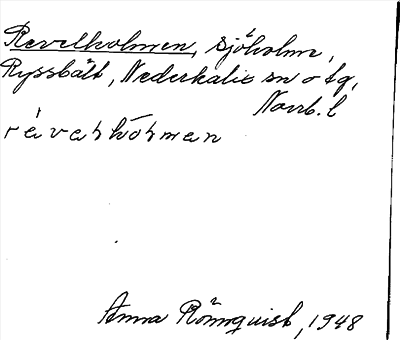 Revelholmen, sjöholme,
Ryssbält, Nederkalix sn o tg,
Norrb. l
Anna Rönnquist, 1948